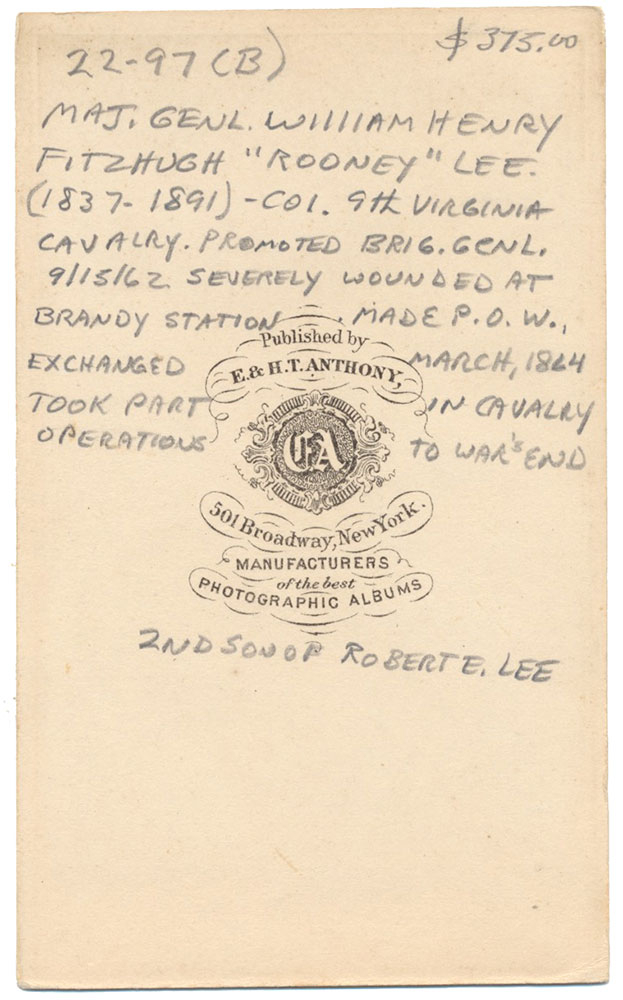 22-97 (B)
$375.00
MAJ. GENL. WILLIAM HENRY
FITZHUGH "ROONEY" LEE.
(1837-1891) - COL. 9th VIRGINIA
CAVALRY. PROMOTED BRIG. GENL.
9/15/62 SEVERELY WOUNDED AT
BRANDY STATION. MADE P.O.W.,
EXCHANGED MARCH, 1864
TOOK PART IN CAVALRY
OPERATIONS TO WAR'S END
Published by
E. & H. T. ANTHONY,
EA
501 Broadway, New York.
MANUFACTURERS
of the best
PHOTOGRAPHIC ALBUMS
2ND SON OF ROBERT E. LEE